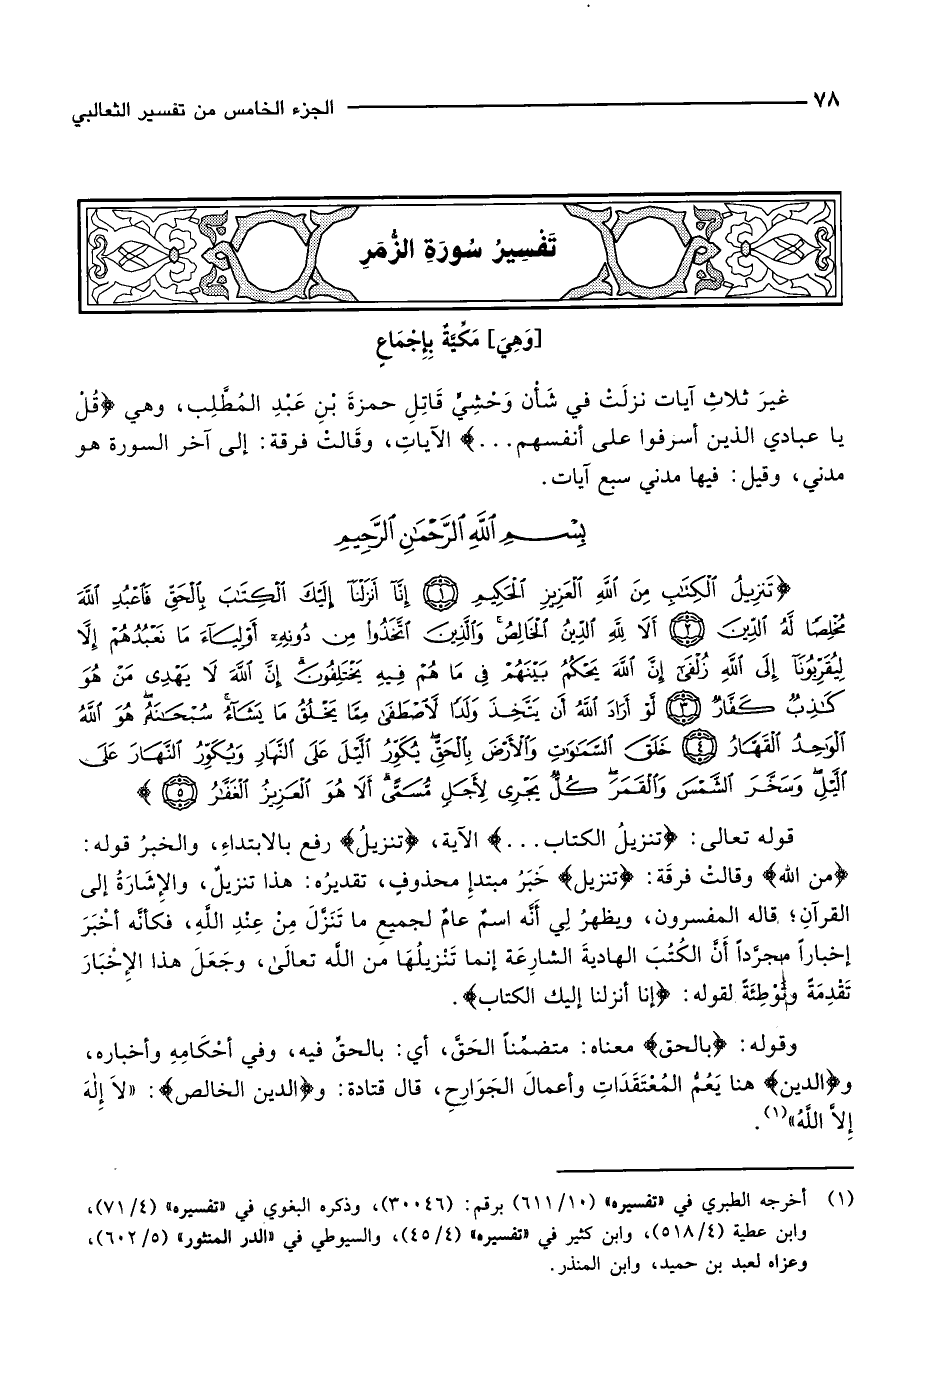 ٧٨ الجزء الخامس من تفسير الثعالبي
تَفْسِيرُ سُورَةِ الزُّمَرِ
[وَهِيَ] مَكِّيَّةٌ بِإِجْمَاعٍ
غيرَ ثلاثِ آيات نزلَتْ في شَأْن وَحْشِيِّ قَاتِلِ حمزةَ بْنِ عَبْدِ المُطَّلِب، وهي ﴿قُلْ
يا عبادي الذين أسرفوا على أنفسهم...﴾ الآياتِ، وقَالتْ فرقة: إلى آخر السورة هو
مدني، وقيل: فيها مدني سبع آيات.
بِسْمِ ٱللَّهِ ٱلرَّحْمَٰنِ ٱلرَّحِيمِ
﴿تَنزِيلُ ٱلْكِتَٰبِ مِنَ ٱللَّهِ ٱلْعَزِيزِ ٱلْحَكِيمِ ۝١ إِنَّآ أَنزَلْنَآ إِلَيْكَ ٱلْكِتَٰبَ بِٱلْحَقِّ فَٱعْبُدِ ٱللَّهَ
مُخْلِصًا لَّهُ ٱلدِّينَ ۝٢ أَلَا لِلَّهِ ٱلدِّينُ ٱلْخَالِصُ ۚ وَٱلَّذِينَ ٱتَّخَذُوا۟ مِن دُونِهِۦٓ أَوْلِيَآءَ مَا نَعْبُدُهُمْ إِلَّا
لِيُقَرِّبُونَآ إِلَى ٱللَّهِ زُلْفَىٰٓ إِنَّ ٱللَّهَ يَحْكُمُ بَيْنَهُمْ فِى مَا هُمْ فِيهِ يَخْتَلِفُونَ ۗ إِنَّ ٱللَّهَ لَا يَهْدِى مَنْ هُوَ
كَٰذِبٌ كَفَّارٌ ۝٣ لَّوْ أَرَادَ ٱللَّهُ أَن يَتَّخِذَ وَلَدًا لَّٱصْطَفَىٰ مِمَّا يَخْلُقُ مَا يَشَآءُ ۚ سُبْحَٰنَهُۥ ۖ هُوَ ٱللَّهُ
ٱلْوَٰحِدُ ٱلْقَهَّارُ ۝٤ خَلَقَ ٱلسَّمَٰوَٰتِ وَٱلْأَرْضَ بِٱلْحَقِّ ۖ يُكَوِّرُ ٱلَّيْلَ عَلَى ٱلنَّهَارِ وَيُكَوِّرُ ٱلنَّهَارَ عَلَى
ٱلَّيْلِ ۖ وَسَخَّرَ ٱلشَّمْسَ وَٱلْقَمَرَ ۖ كُلٌّ يَجْرِى لِأَجَلٍ مُّسَمًّى ۗ أَلَا هُوَ ٱلْعَزِيزُ ٱلْغَفَّٰرُ ۝٥﴾
قوله تعالى: ﴿تنزيلُ الكتاب...﴾ الآية، ﴿تنزيلُ﴾ رفع بالابتداءِ، والخبرُ قوله:
﴿من الله﴾ وقالتْ فرقَة: ﴿تنزيل﴾ خَبَرُ مبتدإ محذوفٍ، تقديرُه: هذا تنزيلٌ، والإشَارَةُ إلى
القرآنِ؛ قاله المفسرون، ويظهرُ لِي أَنَّه اسمٌ عامٌ لجميعِ ما تَنَزَّلَ مِنْ عِنْدِ اللَّهِ، فكأنَّه أخْبَرَ
إخباراً مجرَّداً أَنَّ الكُتُبَ الهاديةَ الشارعَة إنما تَنْزِيلُهَا من اللَّه تعالَىٰ، وجَعَلَ هذا الإخْبَارَ
تَقْدِمَةً وتَوْطِئَةً لقوله: ﴿إنا أنزلنا إليك الكتاب﴾.
وقوله: ﴿بالحق﴾ معناه: متضمِّناً الحَقَّ، أي: بالحقِّ فيه، وفي أحْكَامِهِ وأخباره،
و﴿الدين﴾ هنا يَعُمُّ المُعْتَقَدَاتِ وأعمالَ الجَوَارِحِ، قال قتادة: و﴿الدين الخالص﴾: «لاَ إِلٰهَ
إِلاَّ اللَّهُ»(١).
(١) أخرجه الطبري في «تفسيره» (١٠/٦١١) برقم: (٣٠٠٤٦)، وذكره البغوي في «تفسيره» (٤/٧١)،
وابن عطية (٤/٥١٨)، وابن كثير في «تفسيره» (٤/٤٥)، والسيوطي في «الدر المنثور» (٥/٦٠٢)،
وعزاه لعبد بن حميد، وابن المنذر.